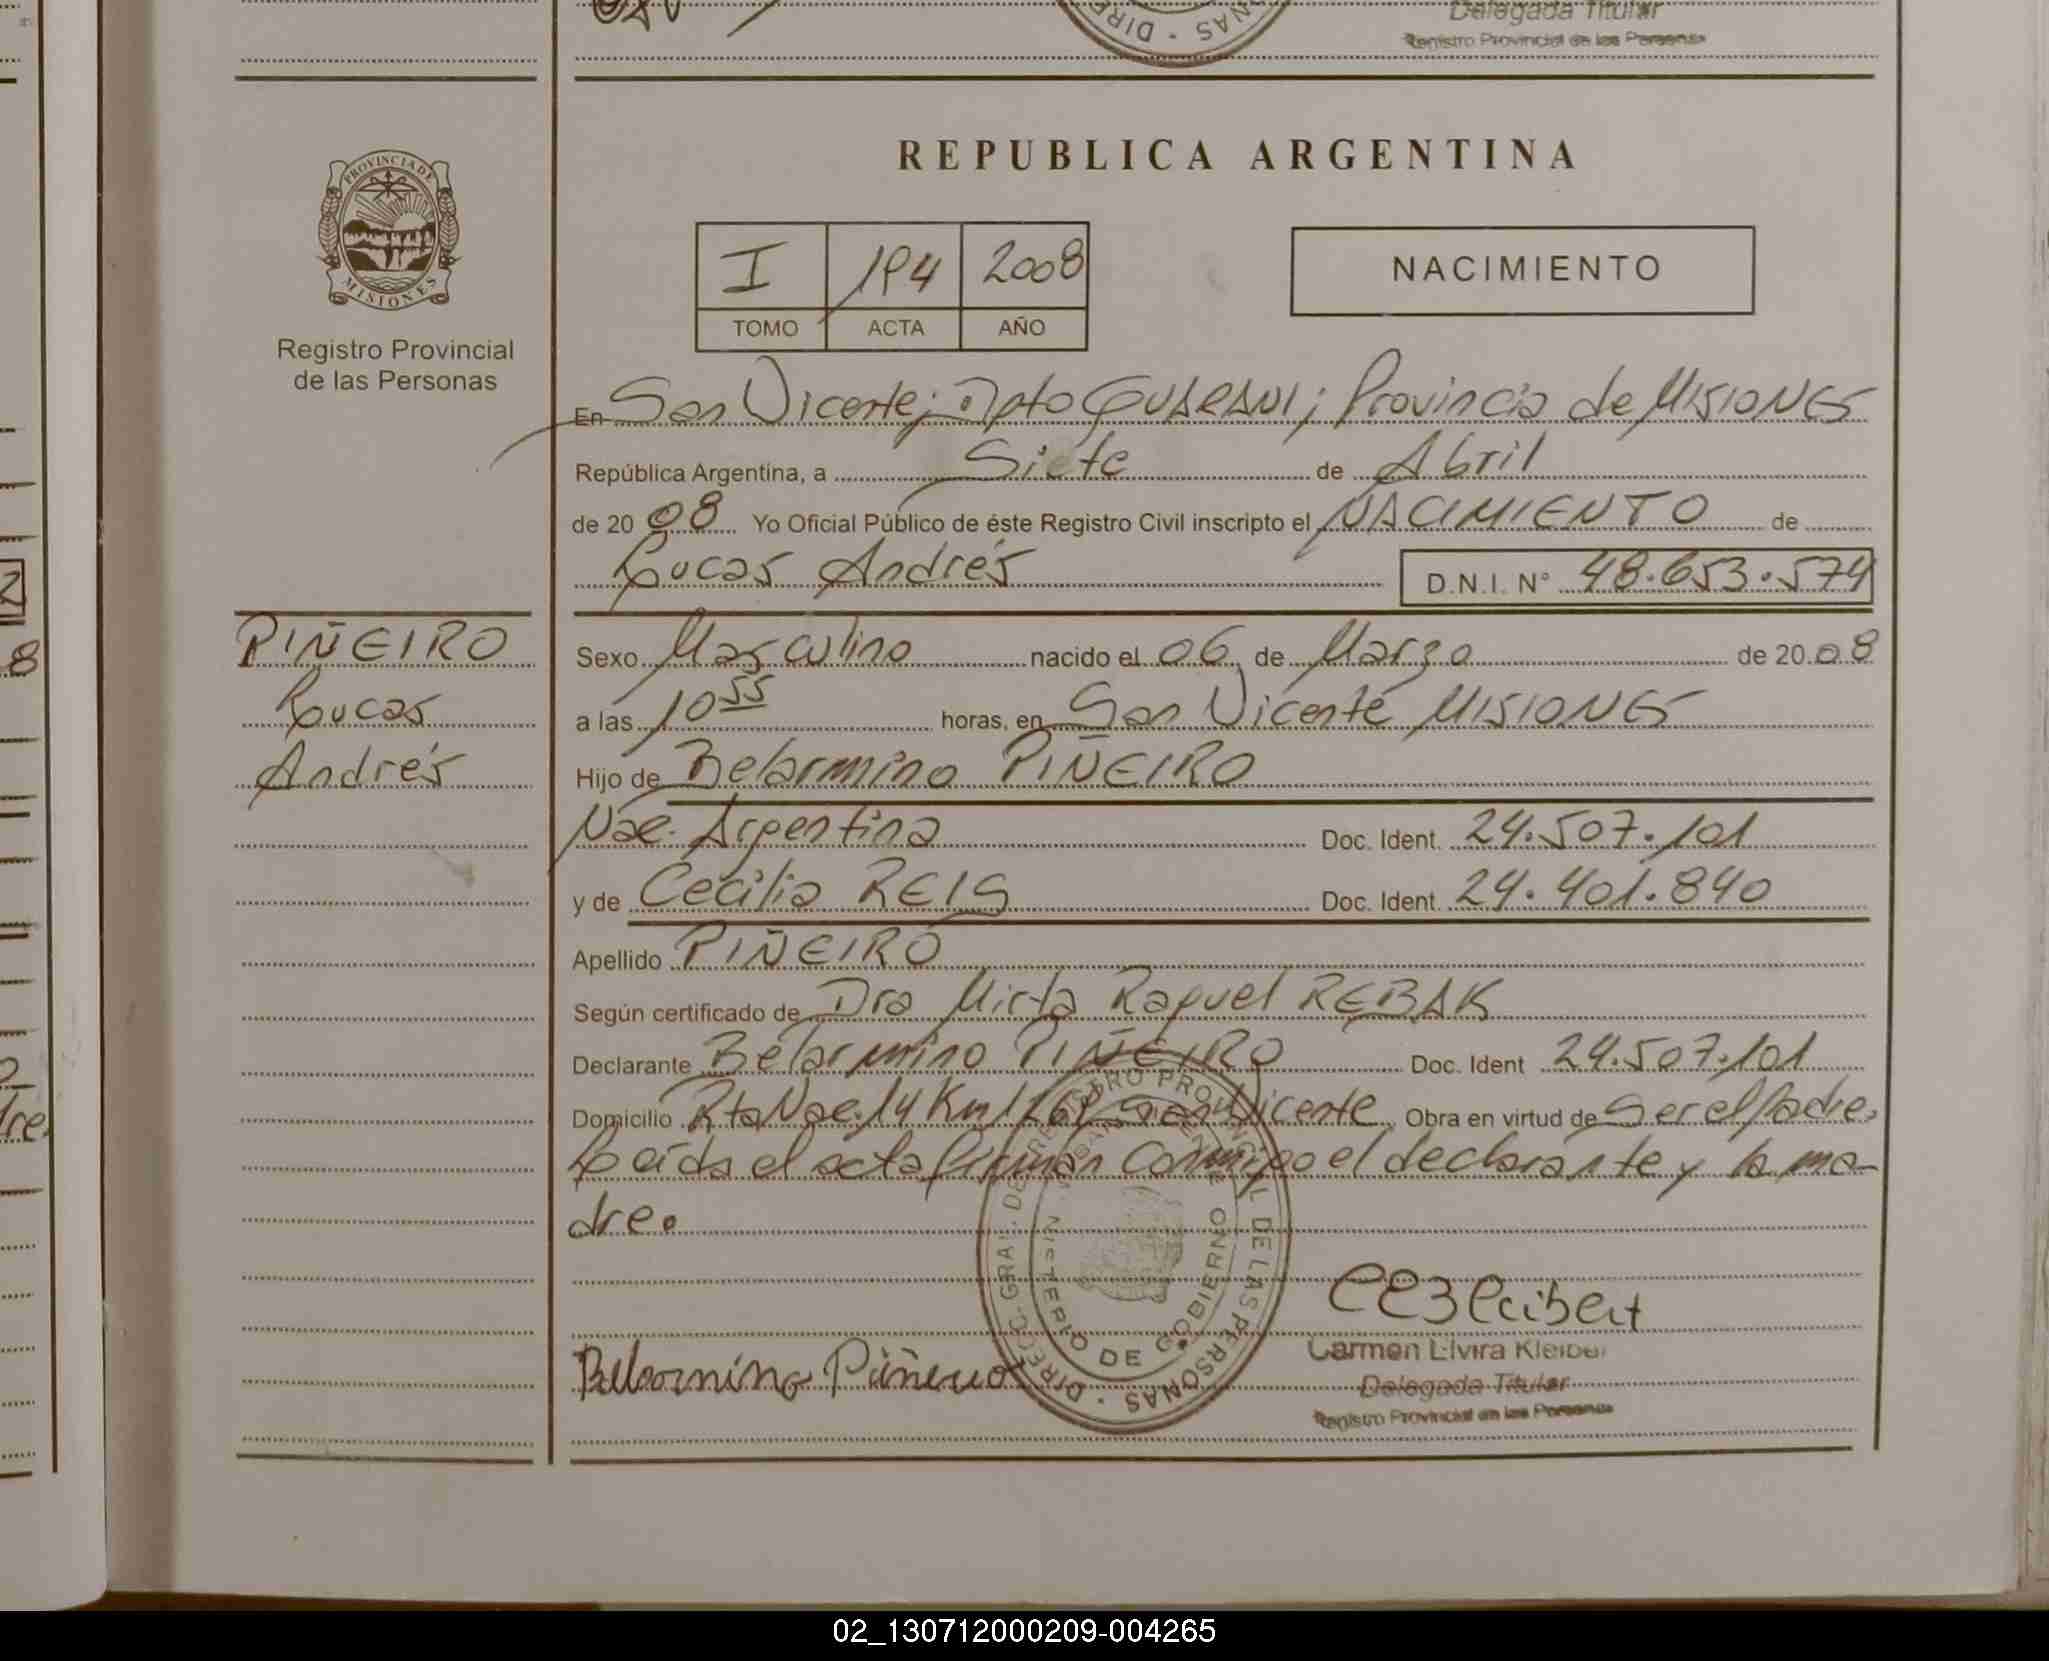 Delegada Titular
Registro Provincial de las Personas
REPUBLICA ARGENTINA
PROVINCIA DE
MISIONES
Registro Provincial
de las Personas
I 194 2008
TOMO ACTA AÑO
NACIMIENTO
En San Vicente; Dpto GUARANI; Provincia de MISIONES
República Argentina, a Siete de Abril
de 20 08 Yo Oficial Público de éste Registro Civil inscripto el NACIMIENTO de
Lucas Andrés D.N.I. Nº 48.653.574
PIÑEIRO
Lucas
Andrés
Sexo Masculino nacido el 06 de Marzo de 20 08
a las 10 55 horas, en San Vicente MISIONES
Hijo de Belarmino PIÑEIRO
Nac. Argentina Doc. Ident. 24.507.101
y de Cecilia REIS Doc. Ident. 24.401.840
Apellido PIÑEIRO
Según certificado de Dra Mirta Raquel REBAK
Declarante Belarmino PIÑEIRO Doc. Ident 24.507.101
Domicilio Rta Nac. 14 Km San Vicente Obra en virtud de Ser el Padre,
Leida el acta firman conmigo el declarante y la ma-
dre.
DIRECC. GRAL. DE REGISTRO PROVINCIAL DE LAS PERSONAS
MINISTERIO DE GOBIERNO
Belarmino Piñeiro
Carmen Elvira Kleiber
Delegada Titular
Registro Provincial de las Personas
02_130712000209-004265